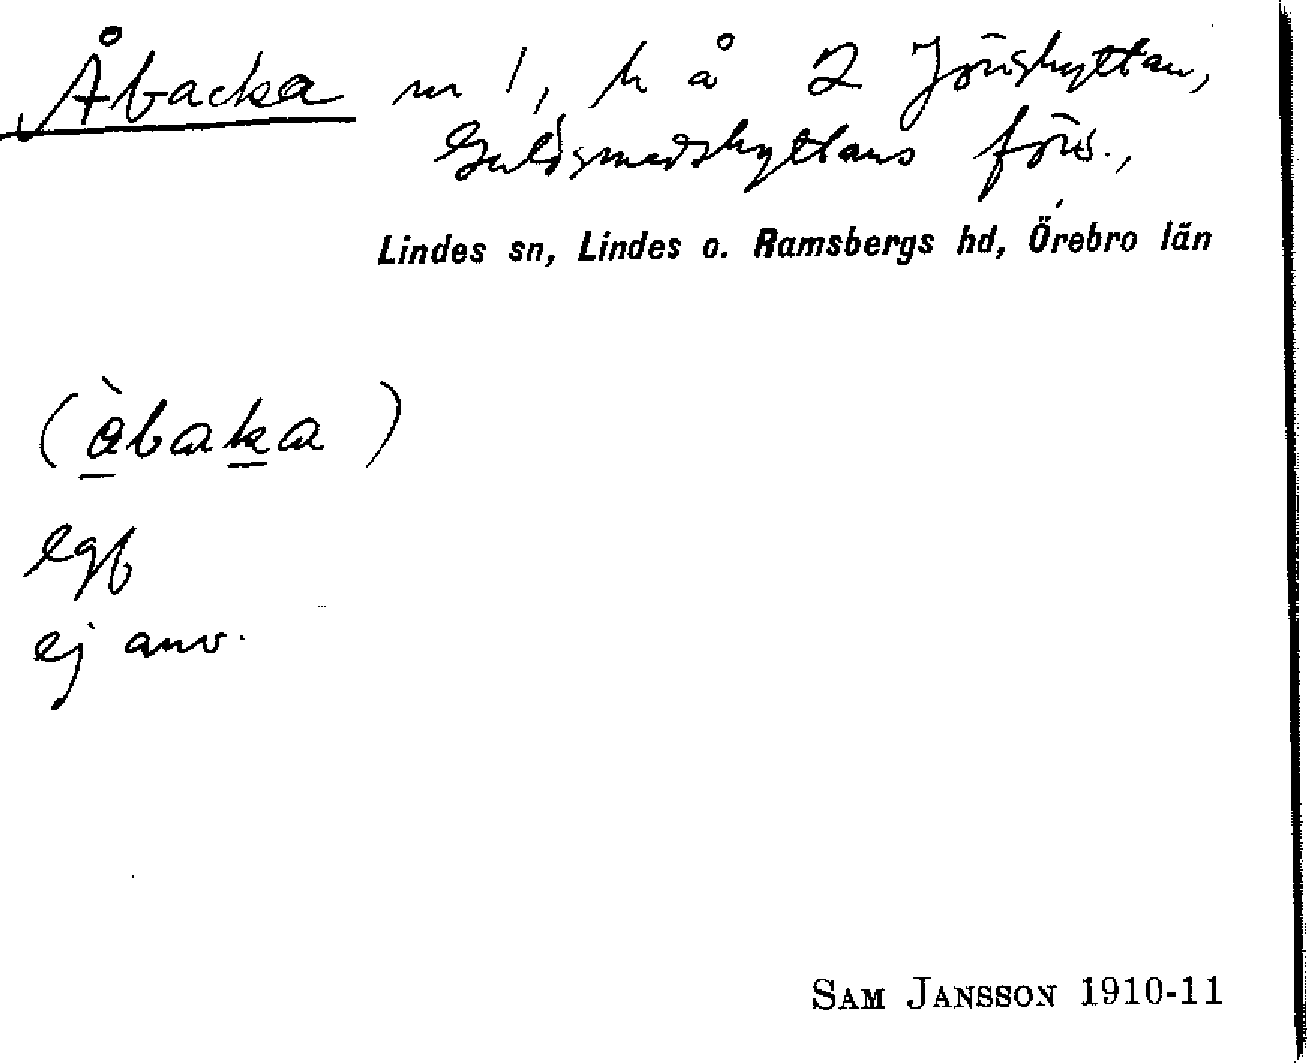 Åbacka m 1, h å 2 Jönshyttan,
Guldsmedshyttans förs.,
Lindes sn, Lindes o. Ramsbergs hd, Örebro län
(àbaka)
lgf
ej anv.
SAM JANSSON 1910-11